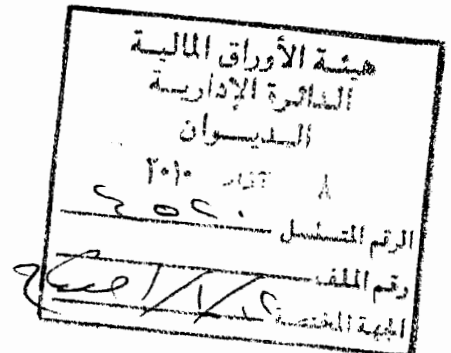 هيئة الأوراق المالية
الدائرة الإدارية
الديوان
٨ آذار ٢٠١٠
الرقم المتسلسل
رقم الملف
الجهة المختصة